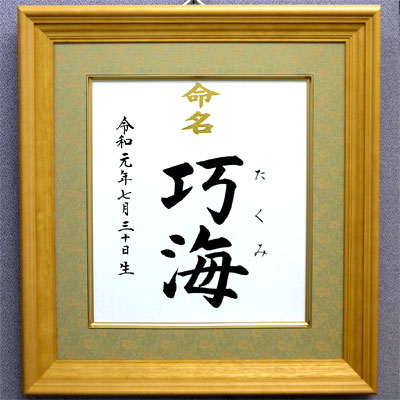 命名
たくみ
巧海
令和元年七月三十日生